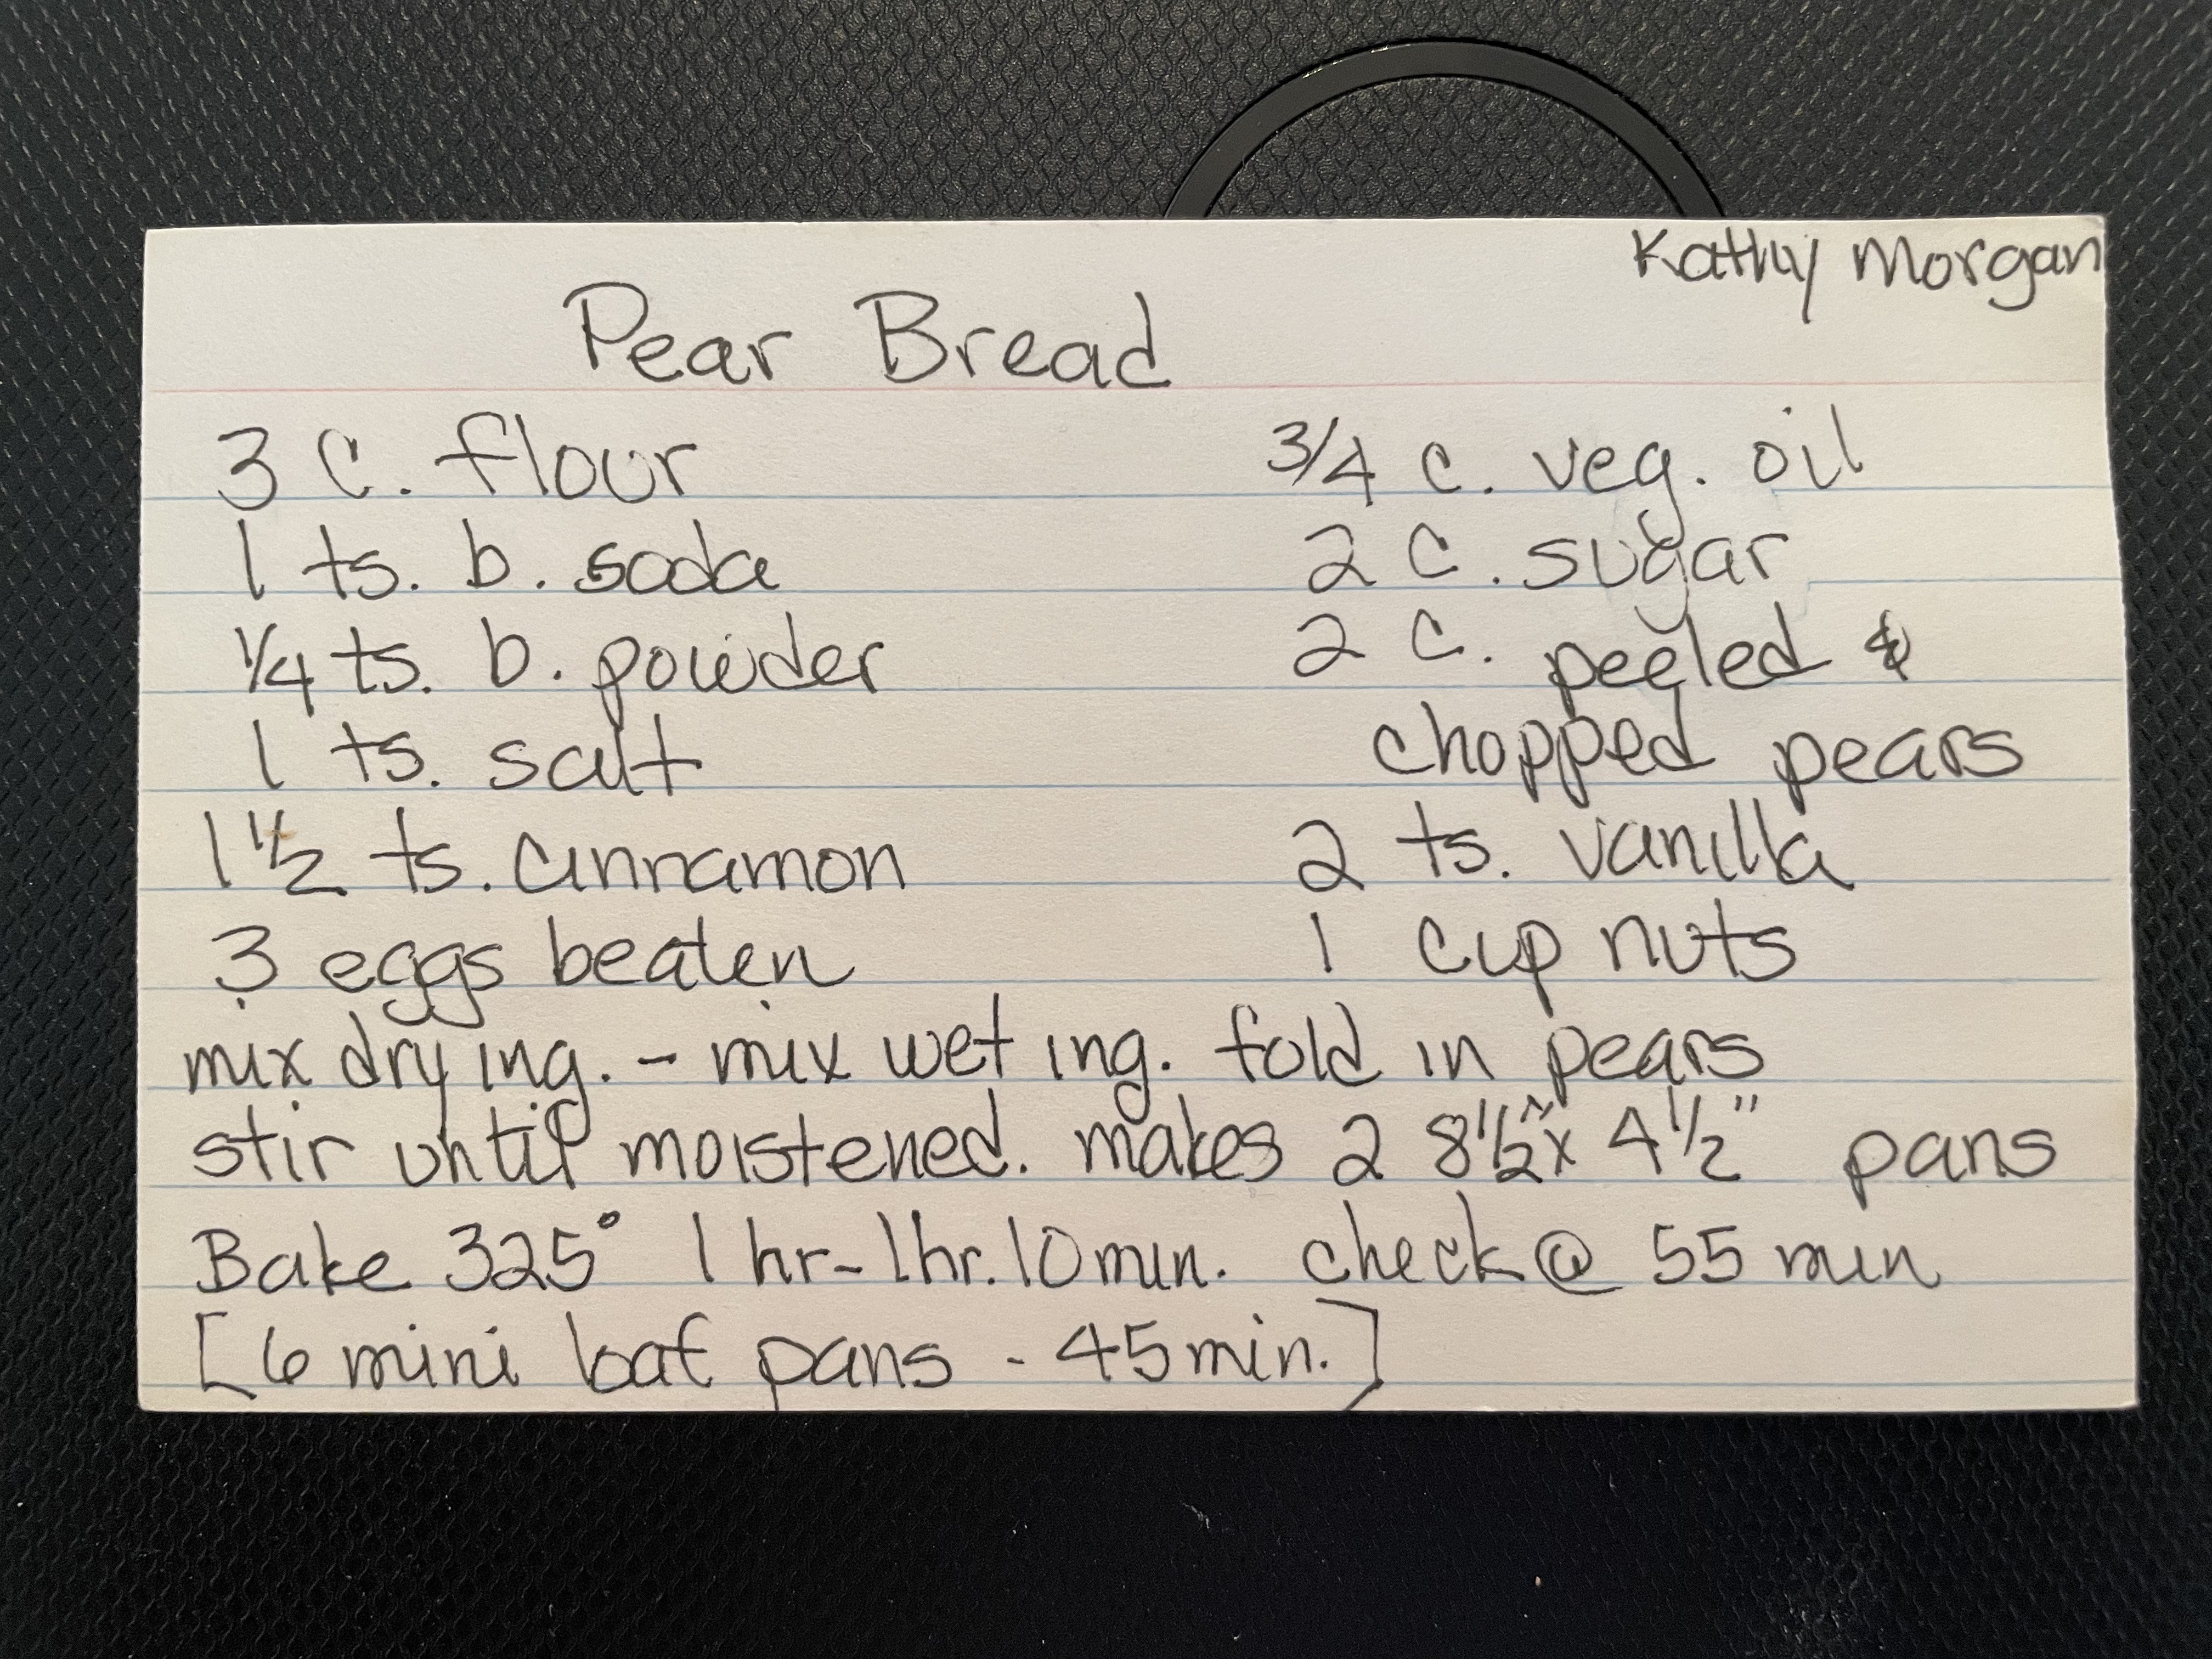 Kathy Morgan
Pear Bread
3 C. flour
1 ts. b. soda
1/4 ts. b. powder
1 ts. salt
1 1/2 ts. cinnamon
3 eggs beaten
3/4 c. veg. oil
2 C. sugar
2 C. peeled &
chopped pears
2 ts. vanilla
1 cup nuts
mix dry ing. - mix wet ing. fold in pears
stir until moistened. makes 2 8 1/2" x 4 1/2" pans
Bake 325° 1 hr - 1 hr. 10 min. check @ 55 min
[6 mini loaf pans - 45 min.]